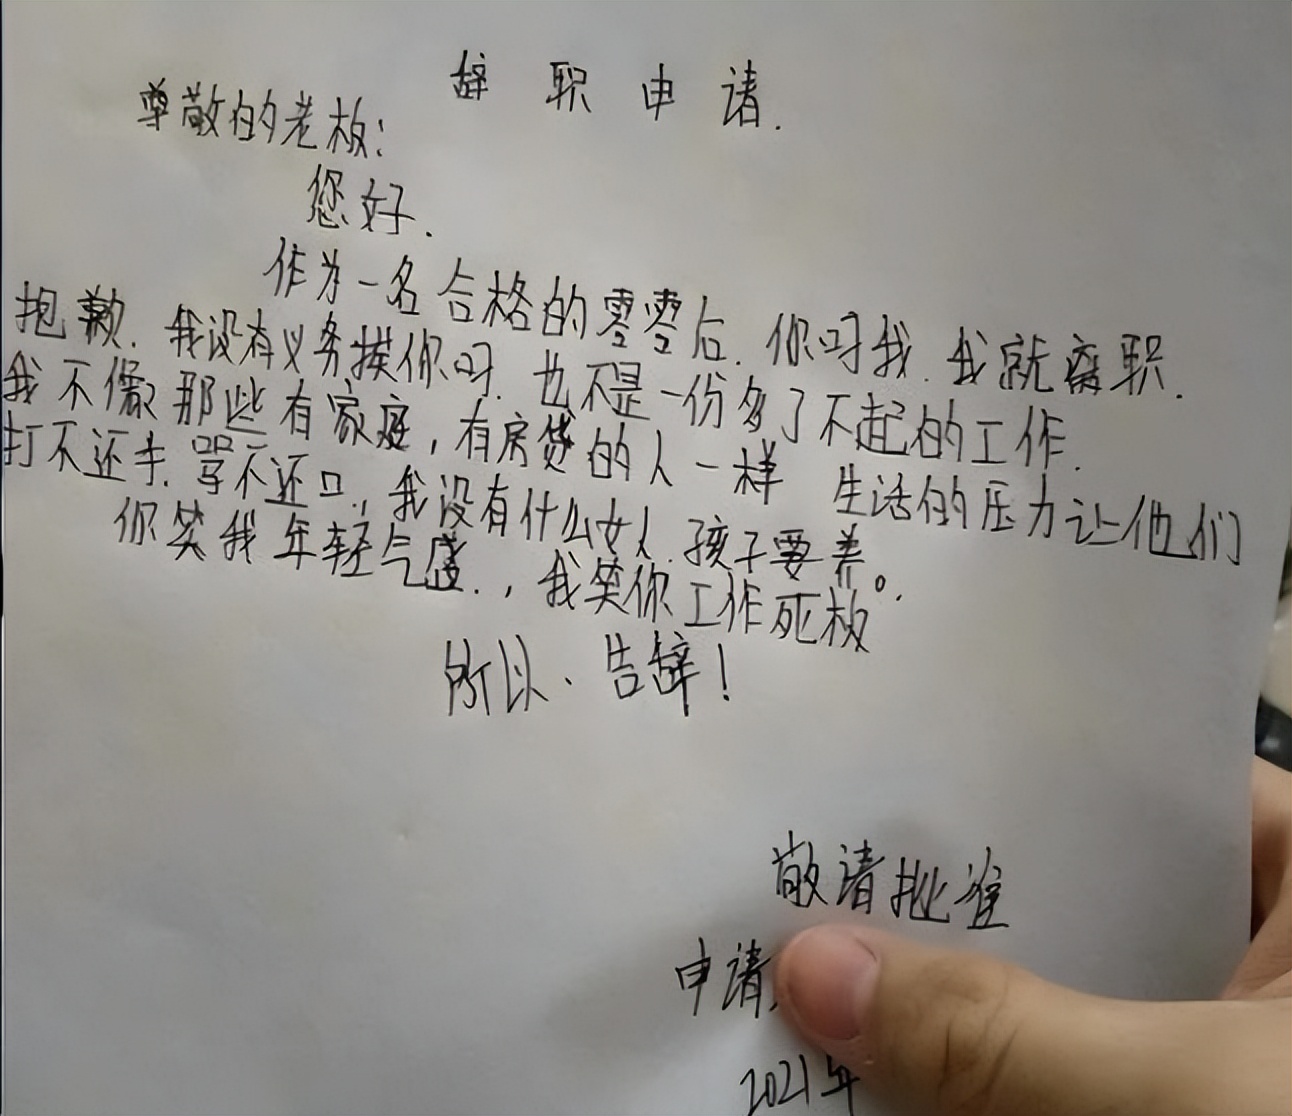 辞职申请.
尊敬的老板:
您好.
作为一名合格的零零后.你叼我.我就离职.
抱歉.我没有义务挨你叼.也不是一份多了不起的工作.
我不像那些有家庭,有房贷的人一样 生活的压力让他们
打不还手.骂不还口,我没有什么女人.孩子要养。
你笑我年轻气盛.,我笑你工作死板.
所以、告辞!
敬请批准
申请
2021年